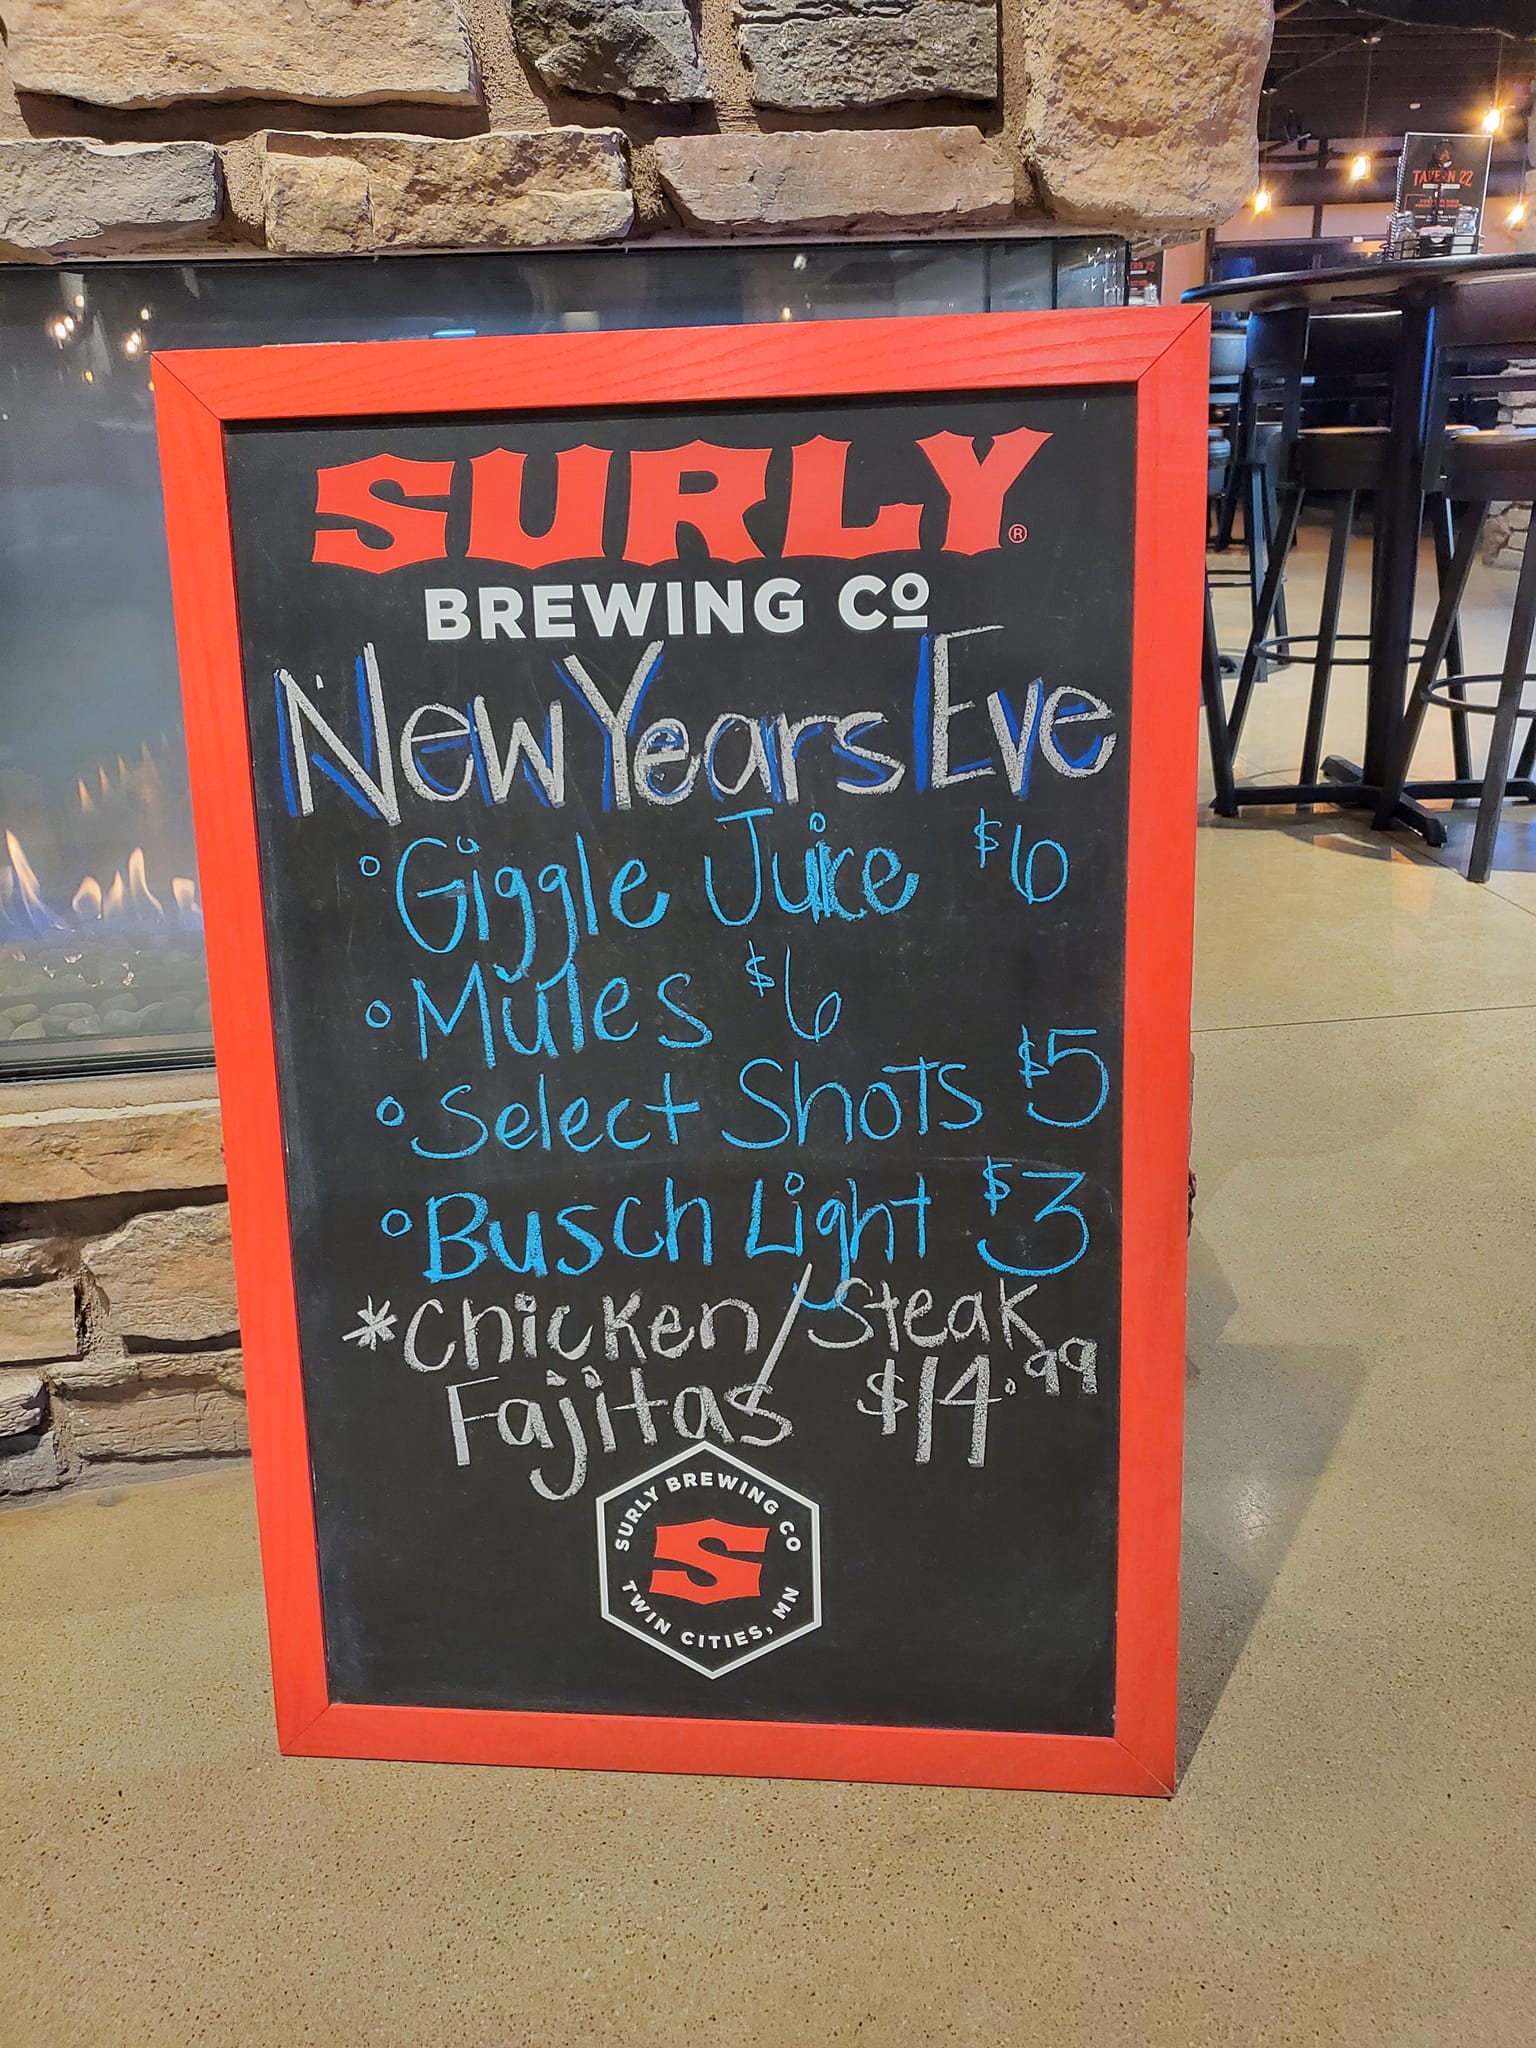 TAVERN 22
SURLY®
BREWING CO
New Years Eve
◦ Giggle Juice $6
◦ Mules $6
◦ Select Shots $5
◦ Busch Light $3
*Chicken/Steak
Fajitas $14.99
SURLY BREWING CO
S
TWIN CITIES, MN